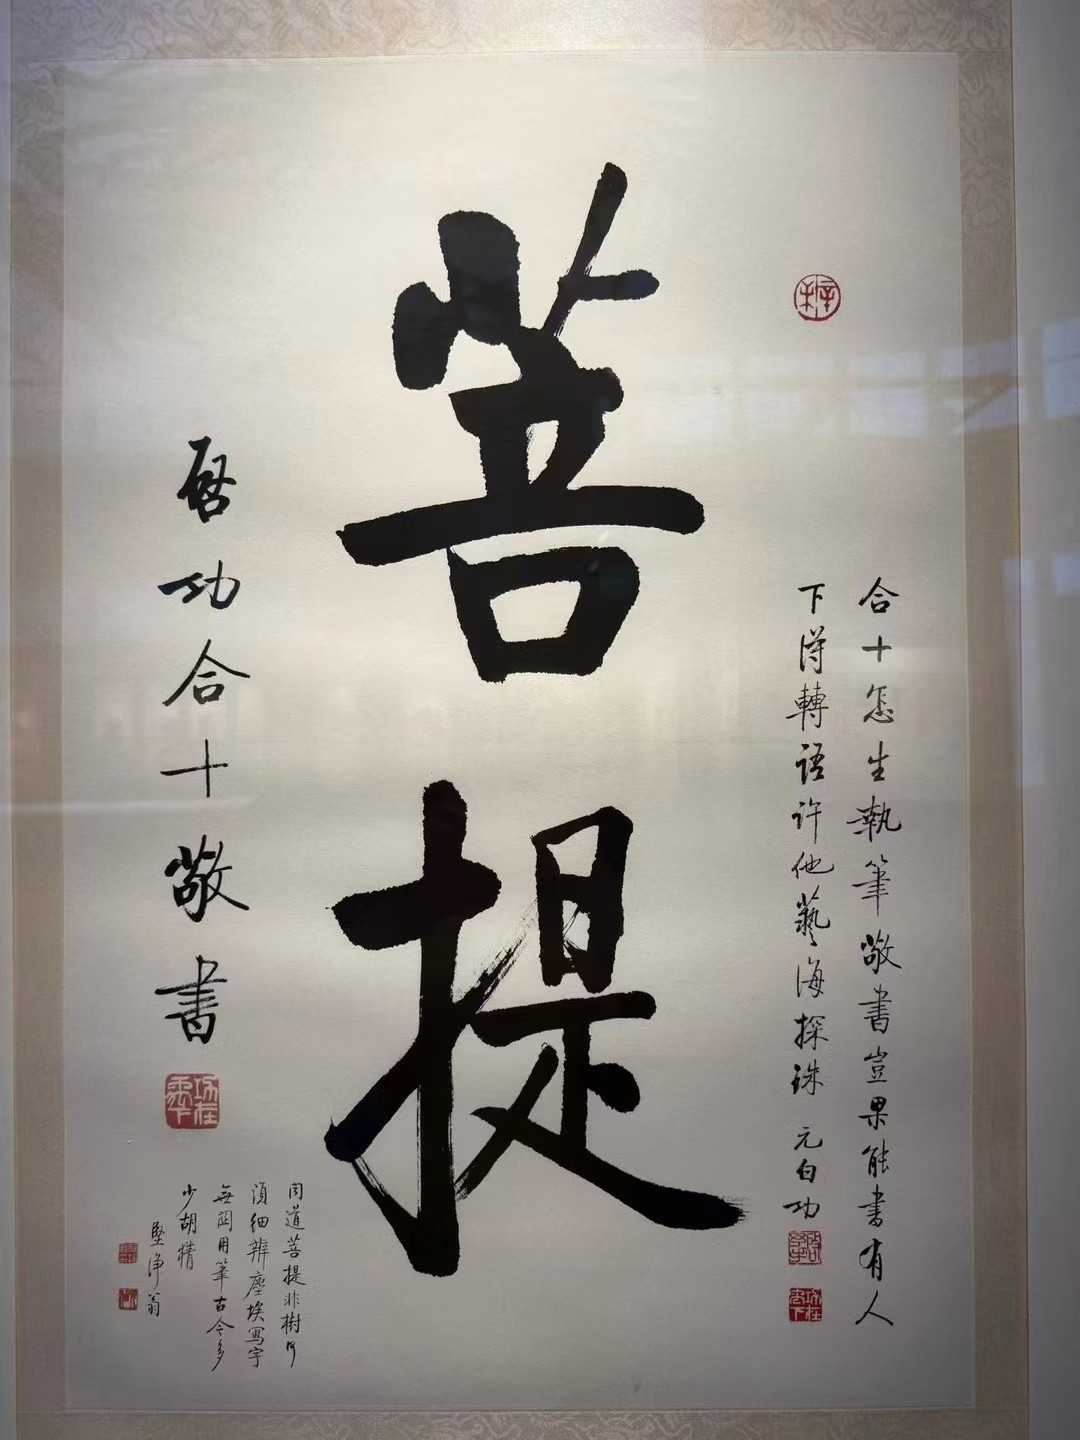 菩提
啓功合十敬書
合十怎生執筆敬書豈果能書有人
下得轉語許他藝海探珠 元白功
同道菩提非樹何
須細辨塵埃寫字
無關用筆古今多
少胡猜
堅淨翁